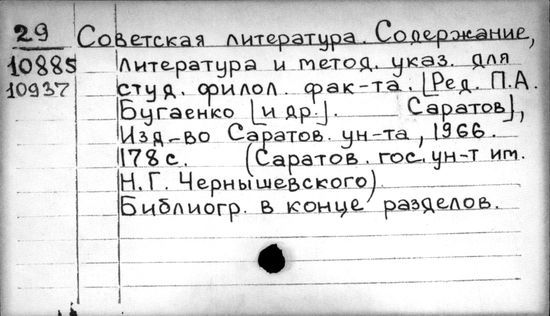 29 Советская литература. Содержание,
10885 литература и метод. указ. для
10937 студ. филол. фак-та. [Ред. П.А.
Бугаенко [и др.]. Саратов],
Изд-во Саратов. ун-та, 1966.
178 с. (Саратов. гос. ун-т им.
Н.Г. Чернышевского)
Библиогр. в конце разделов.